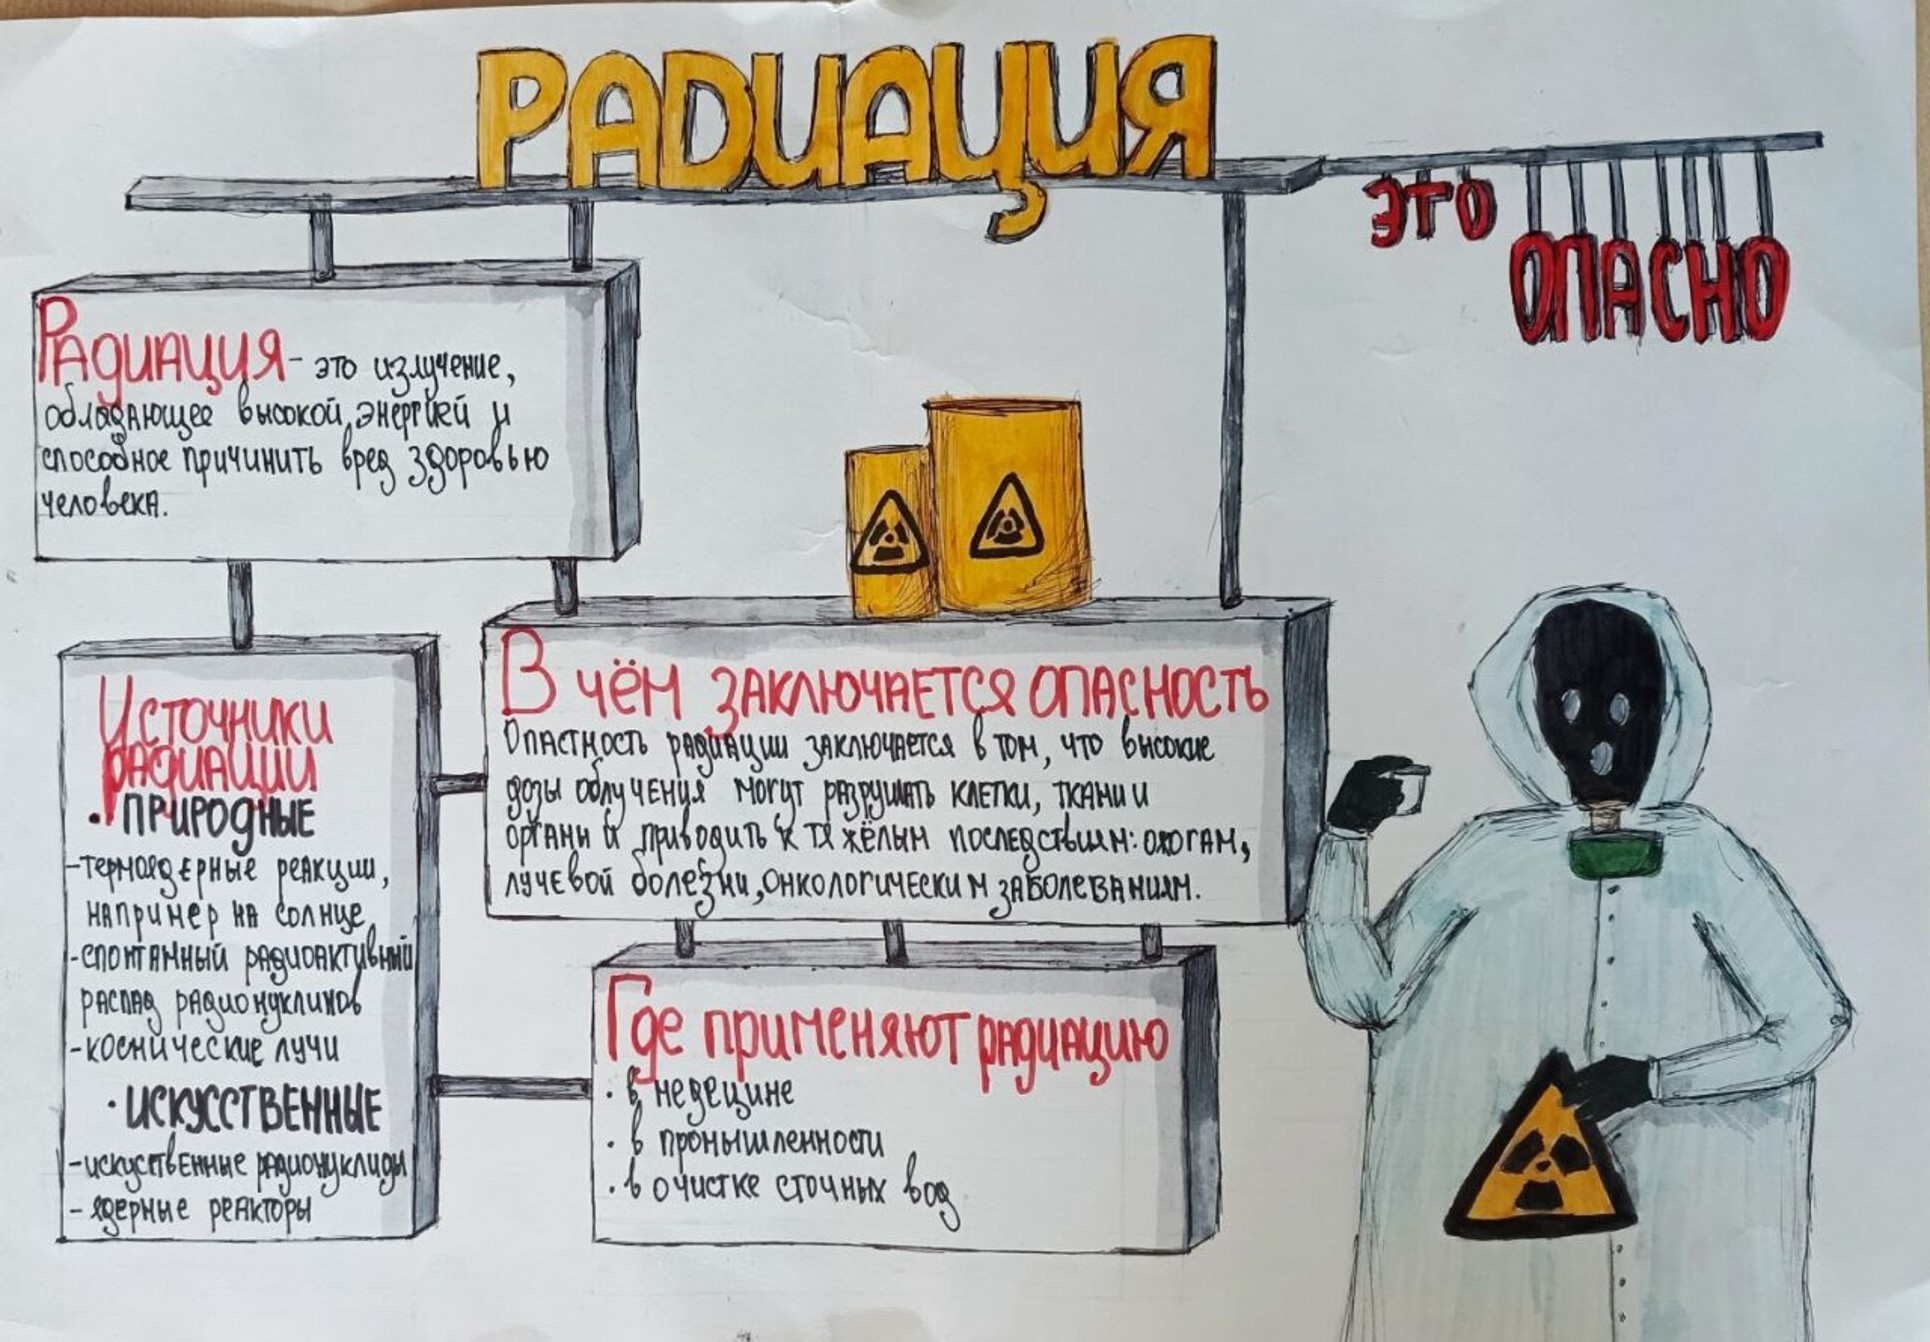 РАДИАЦИЯ
это
ОПАСНО
Радиация - это излучение,
обладающее высокой энергией и
способное причинить вред здоровью
человека.
Источники
радиации
• ПРИРОДНЫЕ
-термоядерные реакции,
например на солнце
-спонтанный радиоактивный
распад радионуклинов
-космические лучи
• ИСКУССТВЕННЫЕ
-искуственные радионуклиды
- ядерные реакторы
В чём заключается опасность
Опастность радиации заключается в том, что высокие
дозы облучения могут разрушать клетки, ткани и
органы и приводить к тяжёлым последствиям: ожогам,
лучевой болезни, онкологическим заболеваниям.
Где применяют радиацию
• в медецине
• в промышленности
• в очистке сточных вод